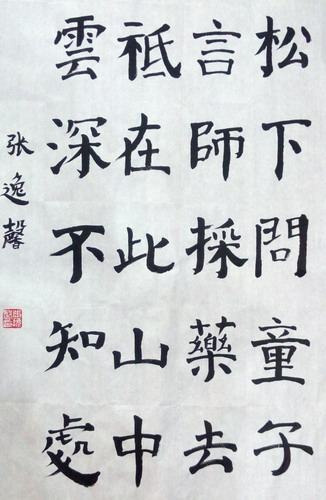 松下問童子
言師採藥去
祗在此山中
雲深不知處
张逸馨